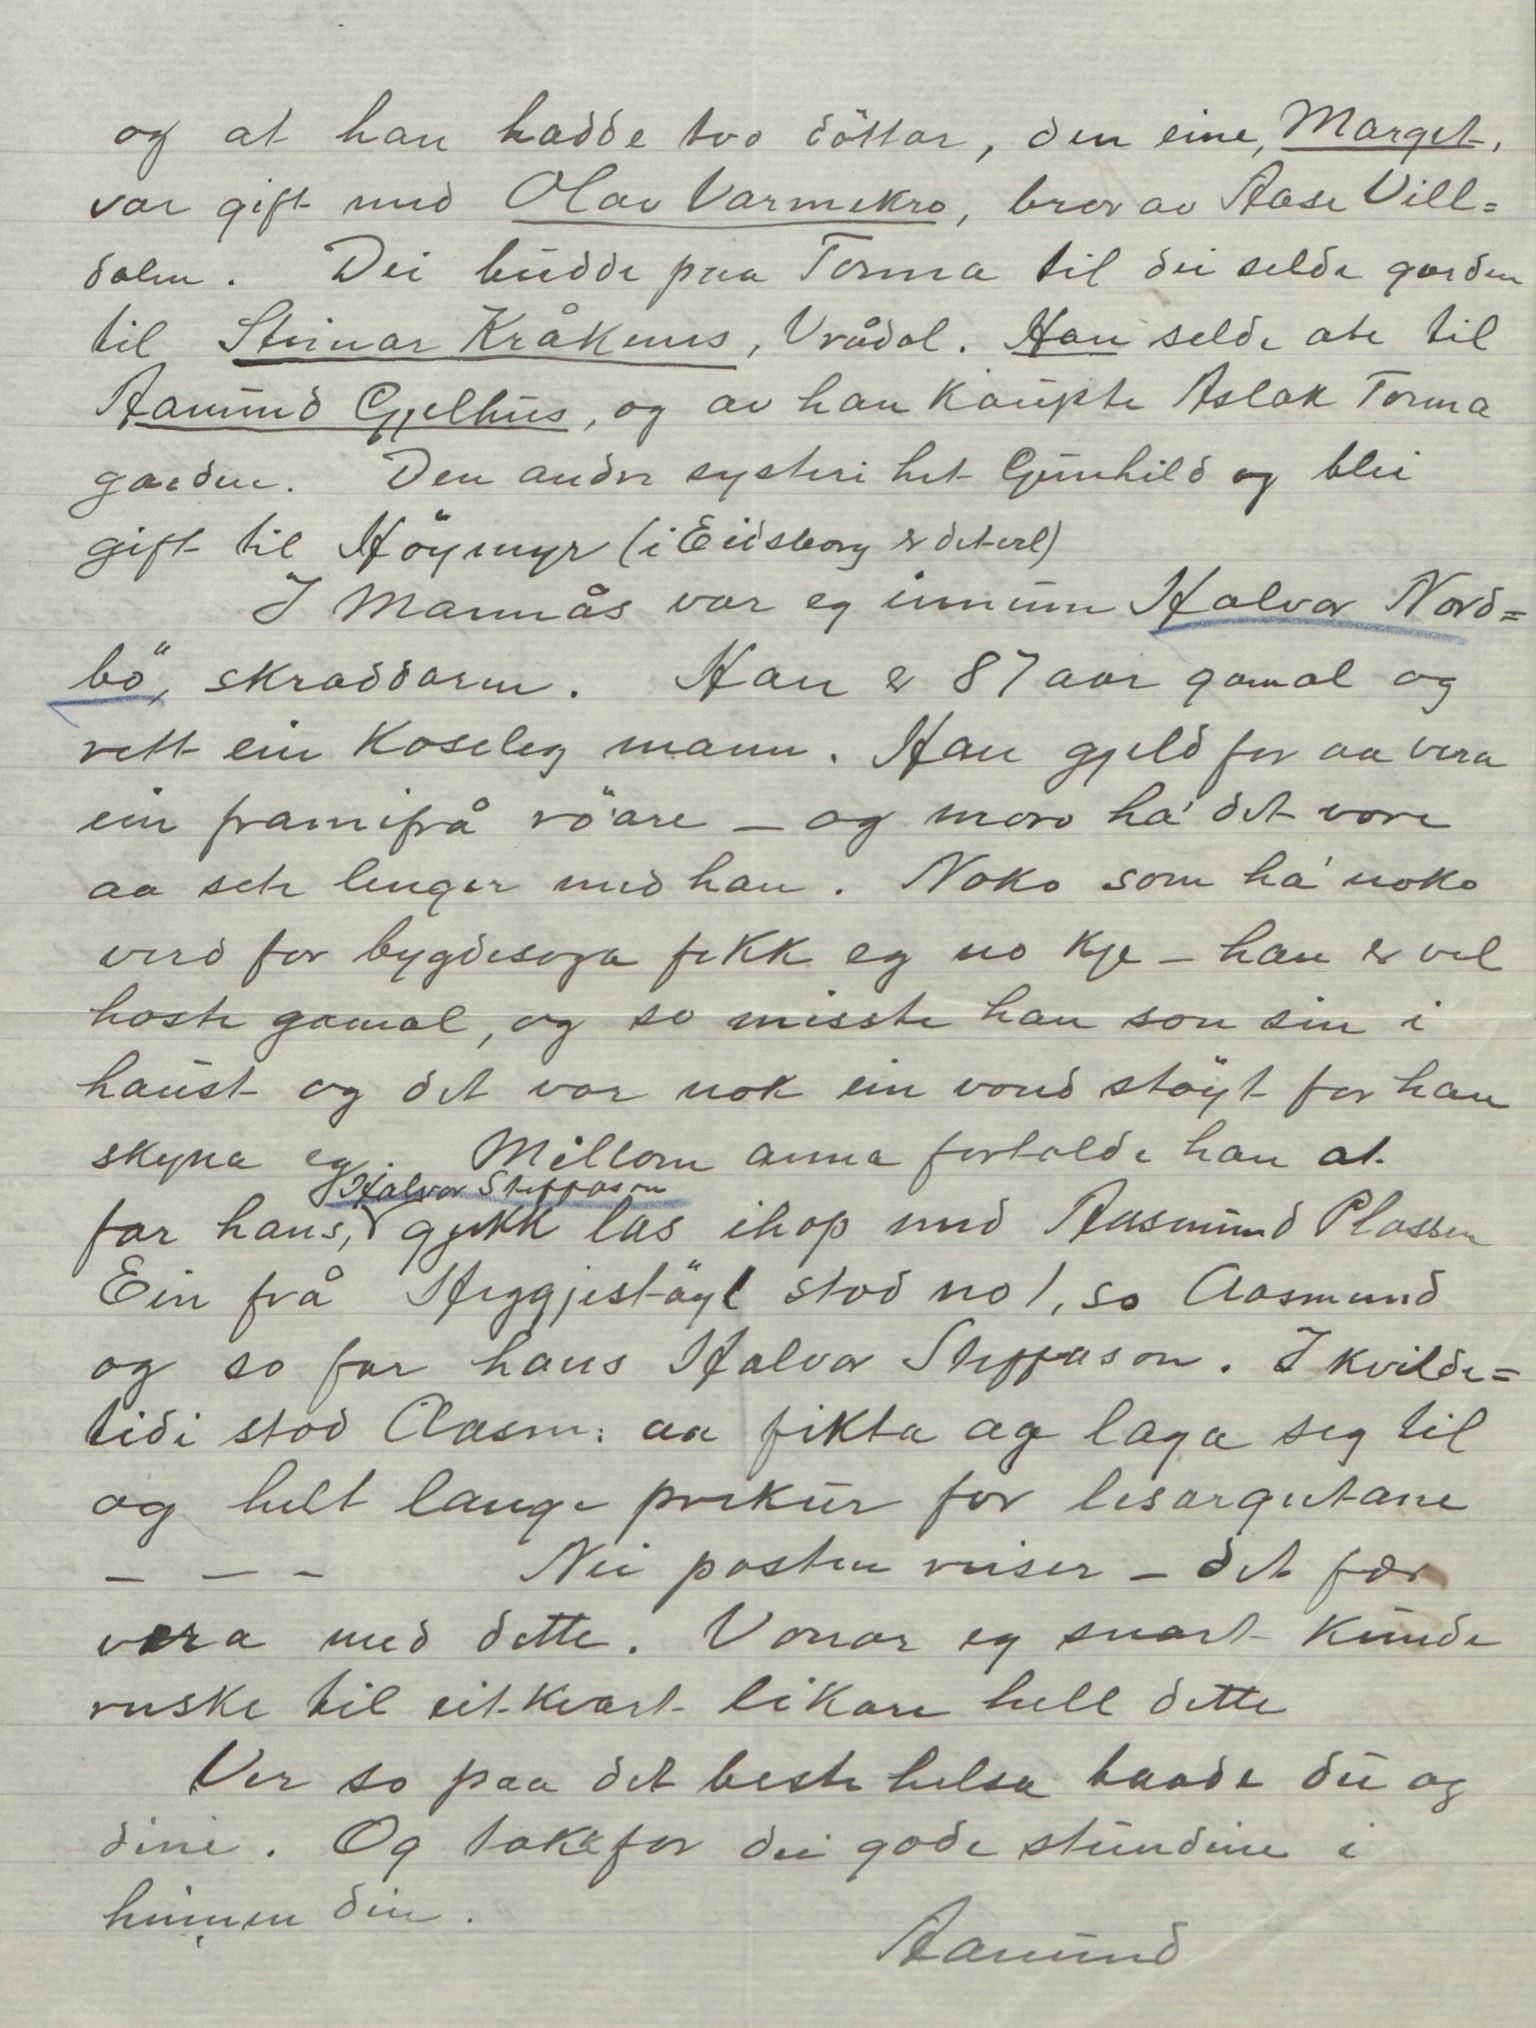 og at han hadde tvo döttar, den eine, Marget,
var gift med Olav Varmekro, bror av Aase Vill=
dalen. Dei budde paa Torma til dei selde garden
til Steinar Kråkenes, Vrådal. Han selde ate til
Aamund Gjelhus, og av han kaupte Aslak Torma
garden. Den andre systeri het Gunhild og blei
gift til Höymyr (i Eidsborg er det vel)
I Mannås var eg innum Halvor Nord=
bö, skraddaren. Han er 87 aar gamal og
rett ein koseleg mann. Han gjeld for aa vera
ein framifrå röare – og moro ha' det vore
aa sete lenger med han. Noko som ha' noko
verd for bygdesoga fekk eg no kje – han er vel
haste gamal, og so misste han son sin i
haust og det var nok ein vond stöyt for han
skyna eg. Millom anna fortalde han at
Halvor Steffason
far hans, gjekk las ihop med Aasmund Plassen
Ein frå Heggjestöyl stod no 1, so Aasmund
og so far hans Halvor Steffason. I kvilde=
tidi stod Aasm: aa fikta og laga seg til
og helt lange prekur for lesargutane
– – – Nei posten reiser – det fær
vera med dette. Vonar eg snart kunde
ruske til eit-kvart likare hell dette
Ver so paa det beste helsa baade du og
dine. Og takk for dei gode stundine i
heimen din.
Aamund